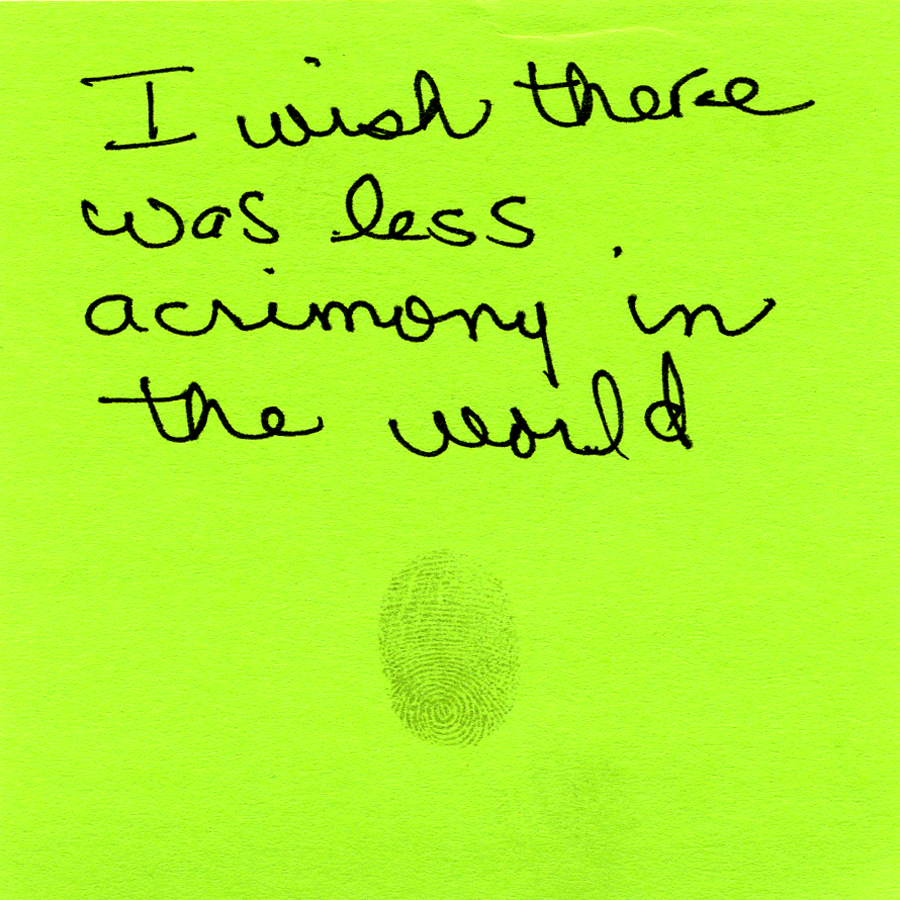 I wish there
was less
acrimony in
the world